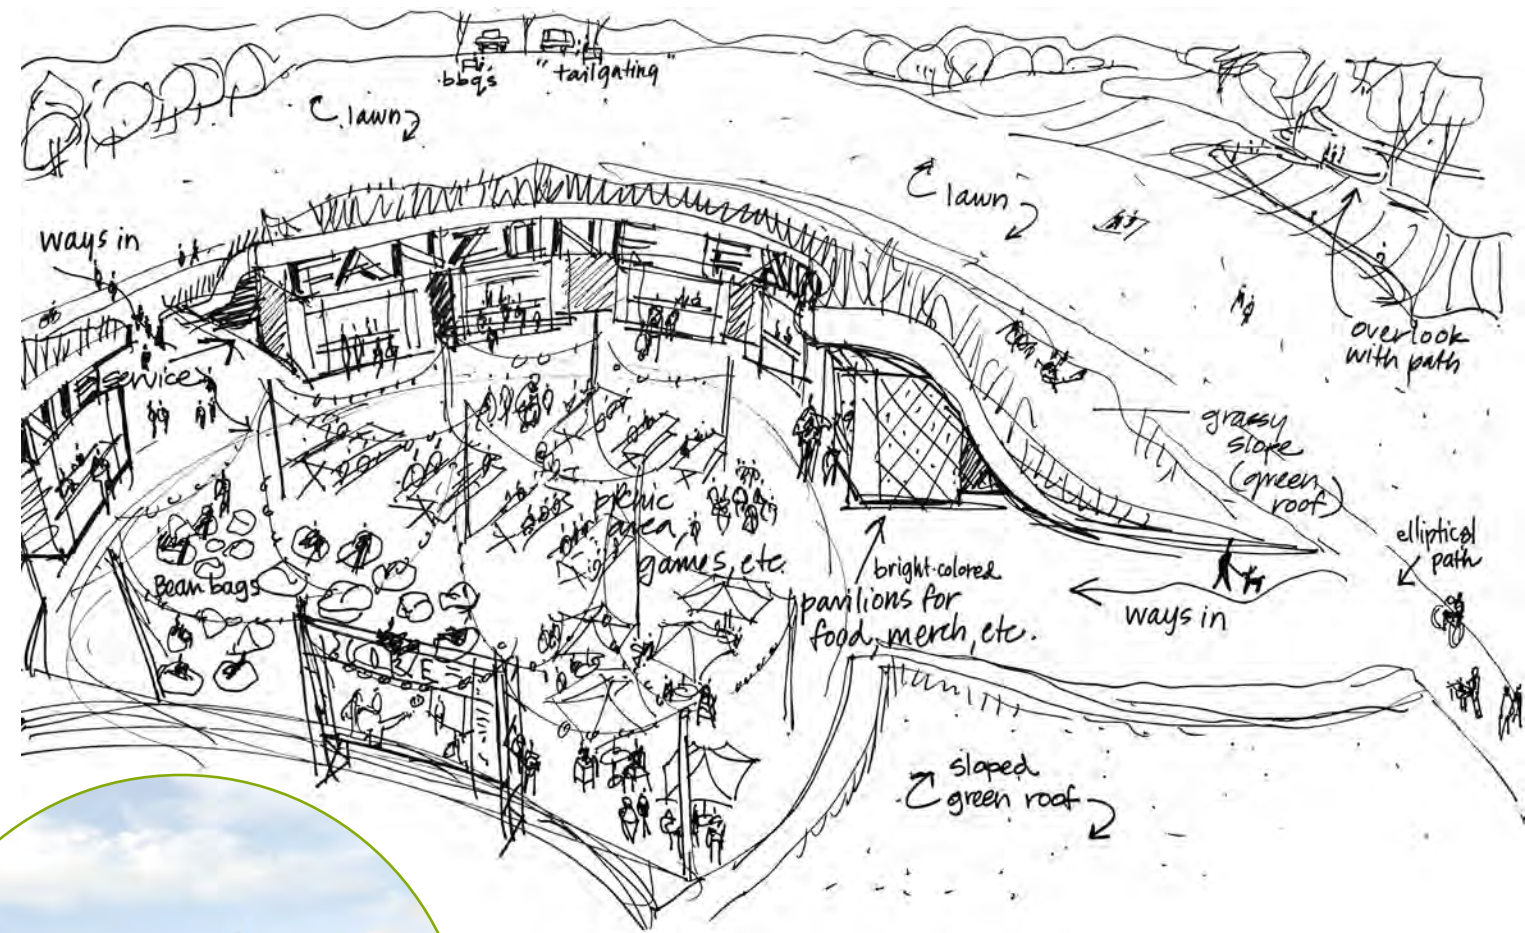 bbq's
"tailgating"
lawn
lawn
ways in
FANZONE
service
overlook
with path
grassy
slope
(green
roof)
picnic
area,
games, etc.
elliptical
path
Bean bags
bright-colored
pavilions for
food, merch, etc.
ways in
sloped
green roof